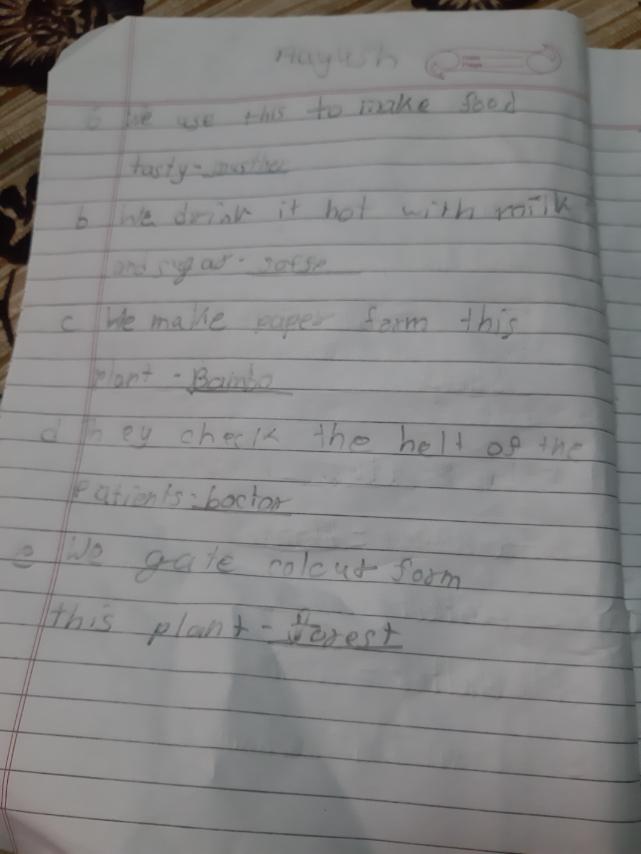 Aayush
We use this to make food
tasty-
b We drink it hot with milk
and sugar-
c We make paper form this
plant - Bambo
d They check the helt of the
Patients - boctor
e We gate colcut form
this plant -